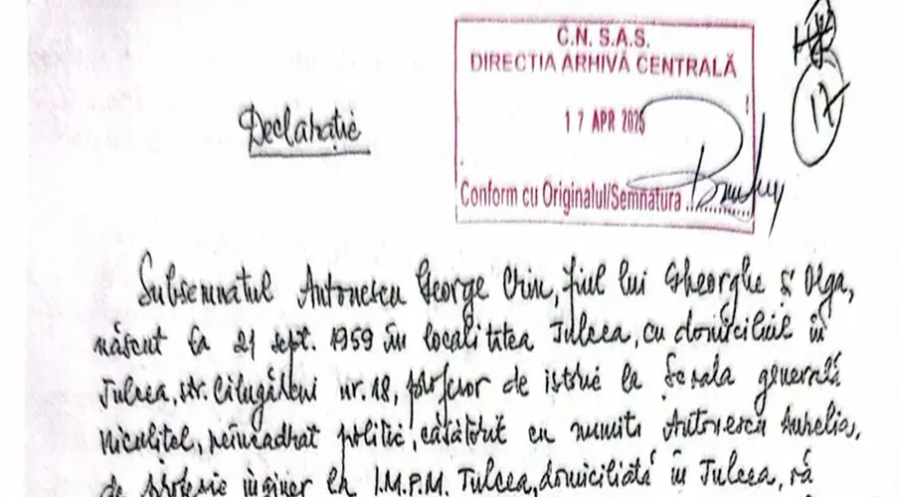 C.N. S.A.S.
DIRECTIA ARHIVĂ CENTRALĂ
17 APR 2025
Conform cu Originalul/Semnatura
17
Declarație
Subsemnatul Antonescu George Crin, fiul lui Gheorghe și Olga,
născut la 21 sept. 1959 în localitatea Tulcea, cu domiciliul în
Tulcea, str. Călugăreni nr. 18, profesor de istorie la Școala generală
Niculițel, neîncadrat politic, căsătorit cu numita Antonescu Aurelia,
de profesie inginer la I.M.P.M. Tulcea, domiciliată în Tulcea, vă